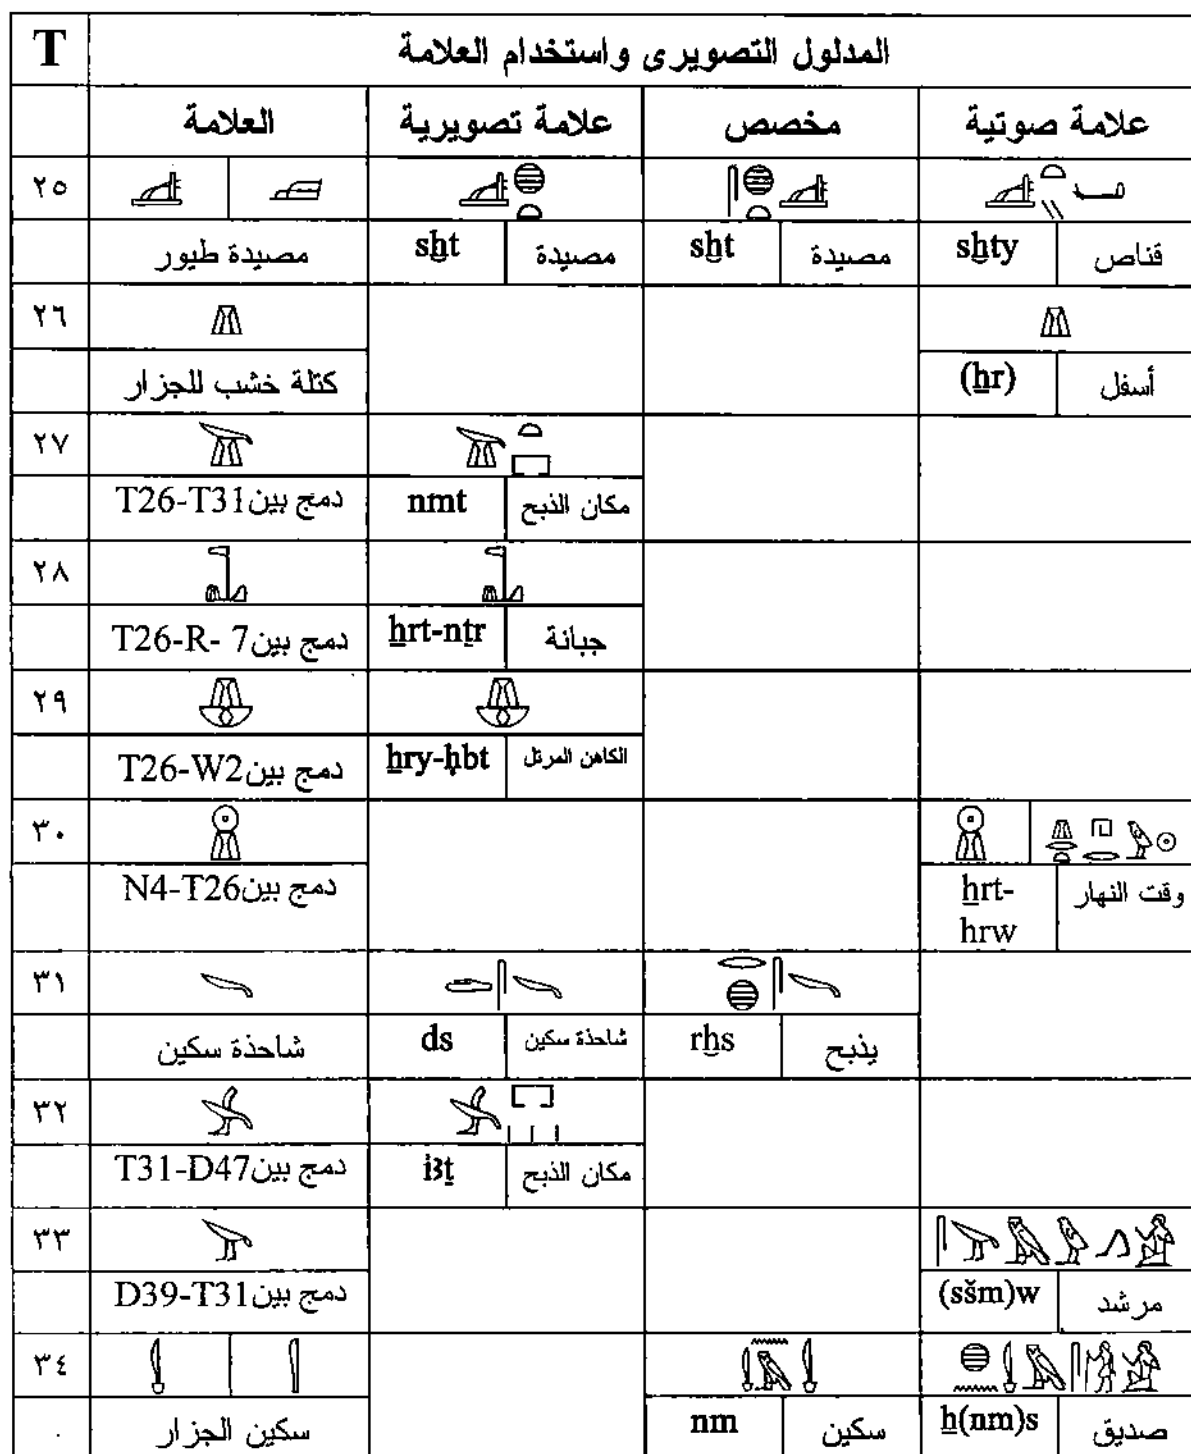 T المدلول التصويرى واستخدام العلامة
العلامة علامة تصويرية مخصص علامة صوتية
٢٥
مصيدة طيور sḫt مصيدة sḫt مصيدة sḫty قناص
٢٦
كتلة خشب للجزار (ẖr) أسفل
٢٧
دمج بين T26-T31 nmt مكان الذبح
٢٨
دمج بين T26-R- 7 ẖrt-nṯr جبانة
٢٩
دمج بين T26-W2 ẖry-ḥbt الكاهن المرتل
٣٠
دمج بين N4-T26 ẖrt-hrw وقت النهار
٣١
شاحذة سكين ds شاحذة سكين rḫs يذبح
٣٢
دمج بين T31-D47 i3ṯ مكان الذبح
٣٣
دمج بين D39-T31 (sšm)w مرشد
٣٤
سكين الجزار nm سكين ẖ(nm)s صديق